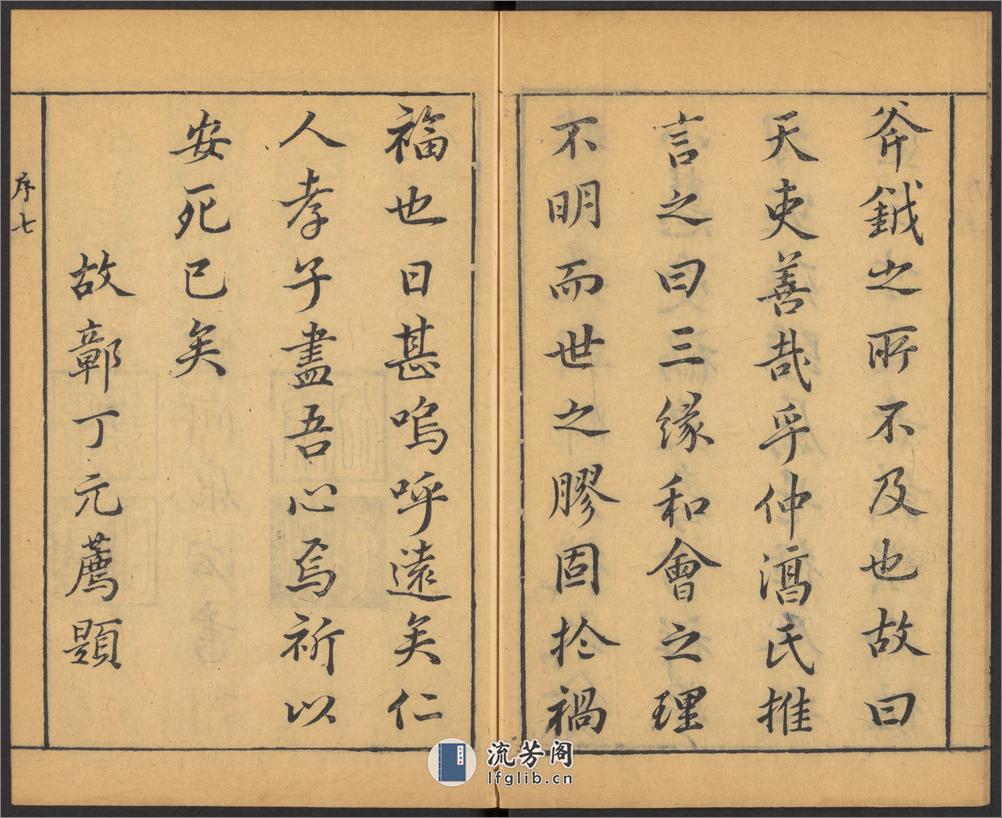 斧鉞之所不及也故曰
天吏善哉乎仲淳氏推
言之曰三緣和會之理
不明而世之膠固扵禍
福也日甚嗚呼遠矣仁
人孝子盡吾心焉祈以
安死已矣
故鄣丁元薦題
序七
流芳阁
lfglib.cn